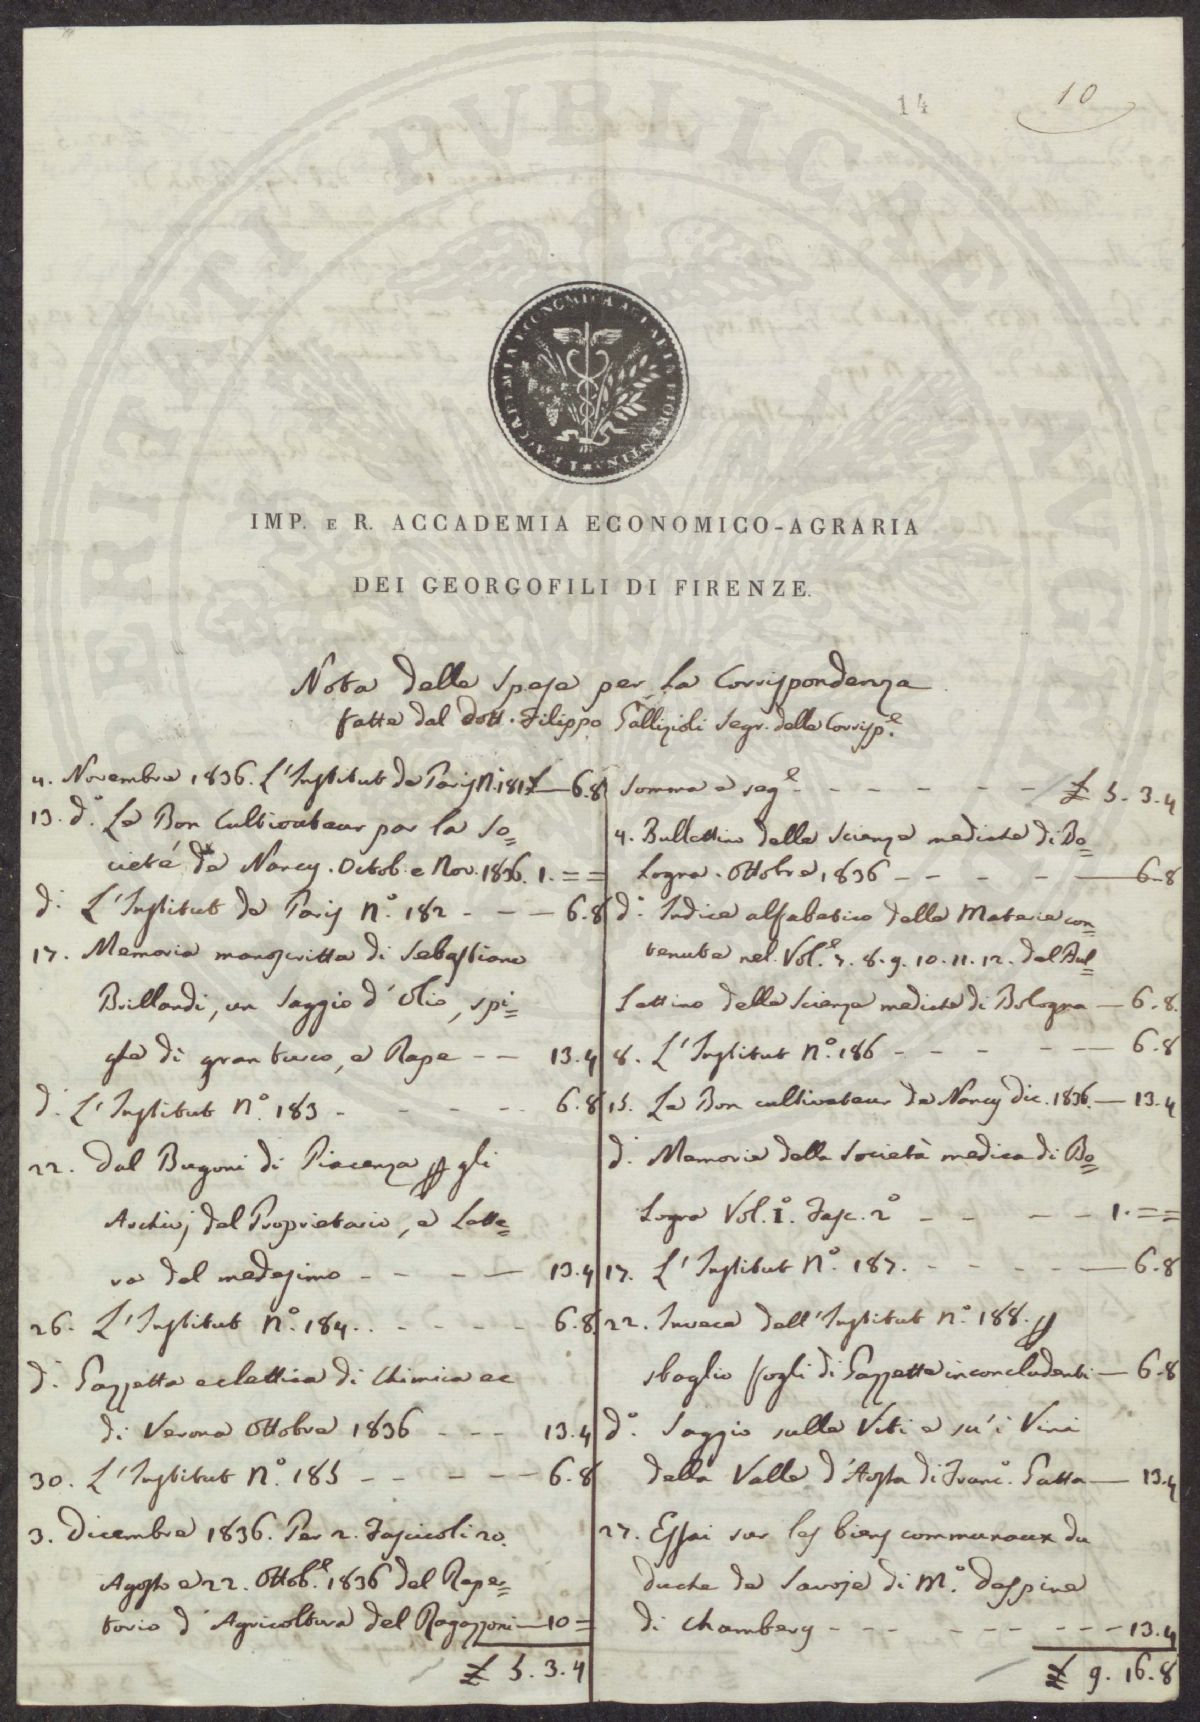 14
10
PROSPERITATI PVBLICAE AVGENDAE
I. E R. ACCADEMIA ECONOMICA AGRARIA FIORENTINA
IMP. E R. ACCADEMIA ECONOMICO-AGRARIA
DEI GEORGOFILI DI FIRENZE.
Nota delle spese per la Corrispondenza
fatte dal Dott. Filippo Gallizioli Segr. delle Corrisp.e
4. Novembre 1836. L'Institut de Paris N.° 181 £ — 6.8
13. d.° Le Bon Cultivateur par la So=
cieté de Nancy. Octob. e Nov. 1836. 1. = =
d.° L'Institut de Paris N.° 182 - - - 6.8
17. Memoria manoscritta di Sebastiano
Brillandi, un saggio d'Olio, spi=
ghe di gran turco, e Rape - - 13.4
d.° L'Institut N.° 183 - - - - - 6.8
22. Dal Bugoni di Piacenza p gli
Archivj del Proprietario, e Lette=
ra del medesimo - - - - 13.4
26. L'Institut N.° 184. - - - - - 6.8
d.° Gazzetta eclettica di Chimica ec
di Verona Ottobre 1836 - - - 13.4
30. L'Institut N.° 185 - - - - - 6.8
3. Dicembre 1836. Per 2. Fascicoli 20.
Agosto e 22. Ottob.e 1836 del Reper=
torio d'Agricoltura del Ragazzoni — 10 =
£ 5. 3. 4
Somma e seg.e - - - - - - £ 5. 3. 4
4. Bullettino delle Scienze mediche di Bo=
logna. Ottobre 1836 - - - - — 6.8
d.° Indice alfabetico delle Materie con=
tenute nel Vol.e 7. 8. 9. 10. 11. 12. del Bul=
lettino delle Scienze mediche di Bologna — 6.8.
8. L'Institut N.° 186 - - - - - 6.8
15. Le Bon cultivateur de Nancy Dic. 1836. — 13.4
d.° Memorie della Società medica di Bo=
logna Vol. I.° Fasc. 2.° - - - - 1. = =
17. L'Institut N.° 187. - - - - - 6.8
22. Invece dell'Institut N.° 188. p
sbaglio fogli di Gazzette inconcludenti — 6.8
d.° Saggio sulle Viti e su' i Vini
della Valle d'Aosta di Franc.° Gatta — 13.4
27. Essai sur les biens communaux du
duché de Savoje di M.° Despine
di Chambery - - - - - - - 13.4
£ 9. 16. 8